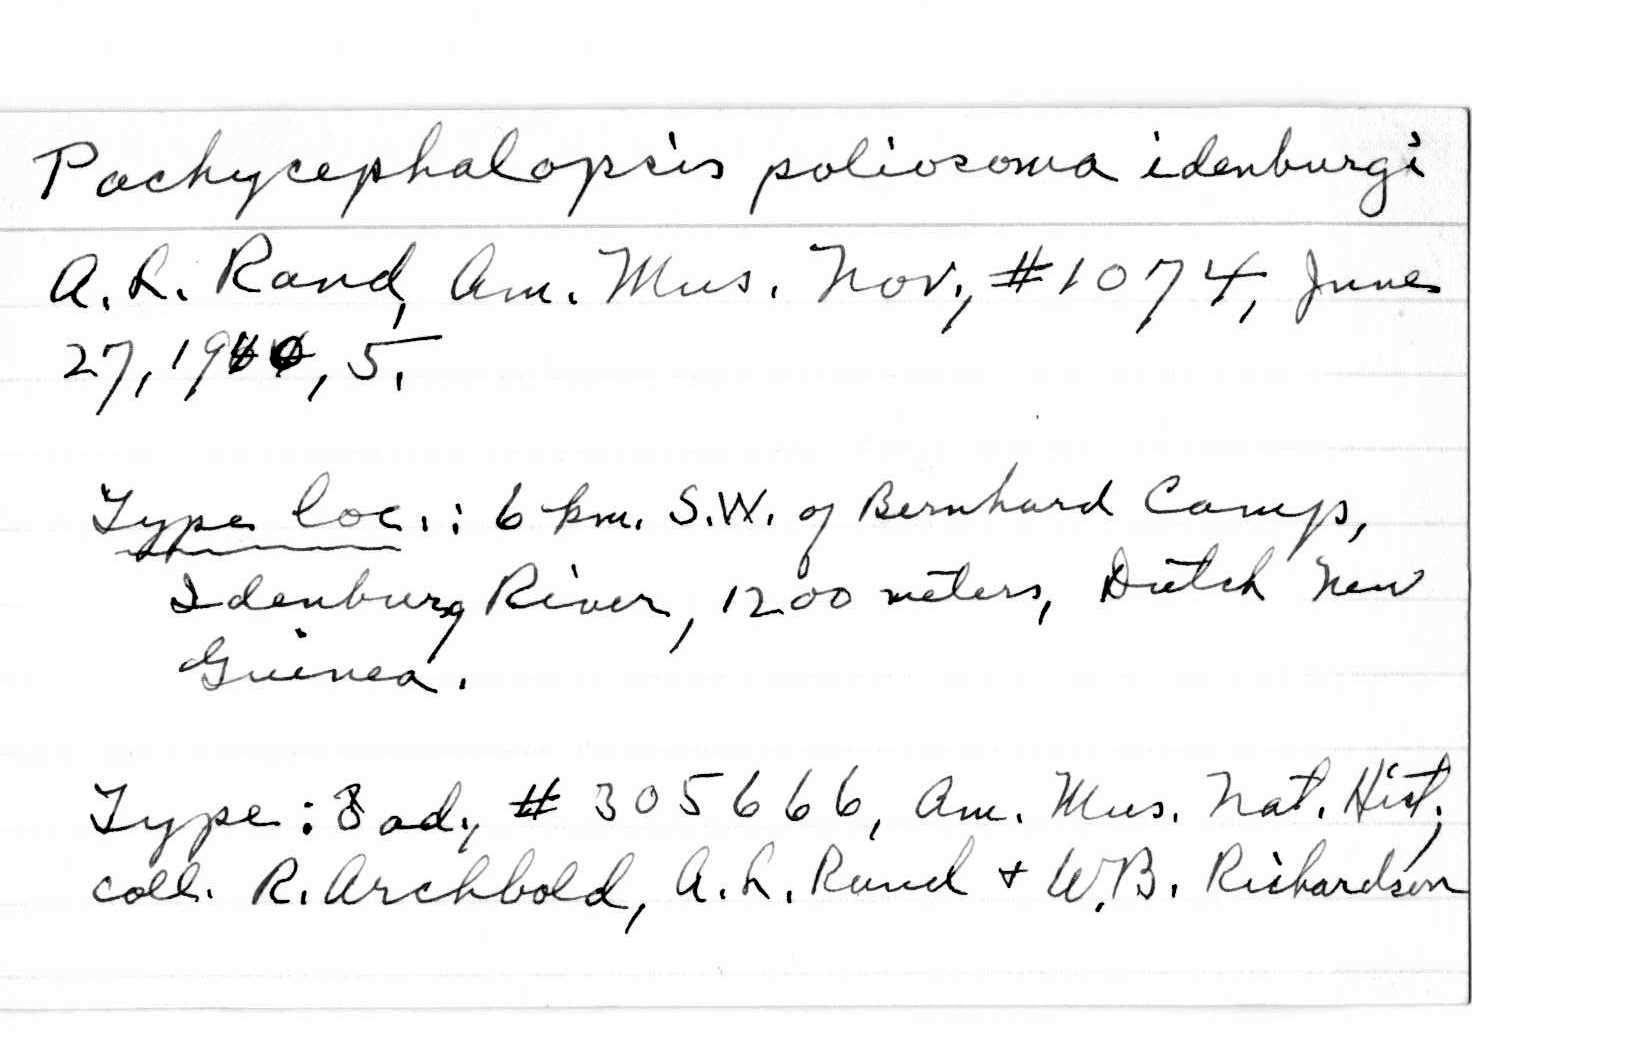 Pachycephalopsis poliosoma idenburgi
A. L. Rand, Am. Mus. Nov., #1074, June
27, 1940, 5.
Type loc.: 6 km. S.W. of Bernhard Camp,
Idenburg River, 1200 meters, Dutch New
Guinea.
Type: ♂ ad., # 305666, Am. Mus. Nat. Hist.;
coll. R. Archbold, A. L. Rand + W.B. Richardson